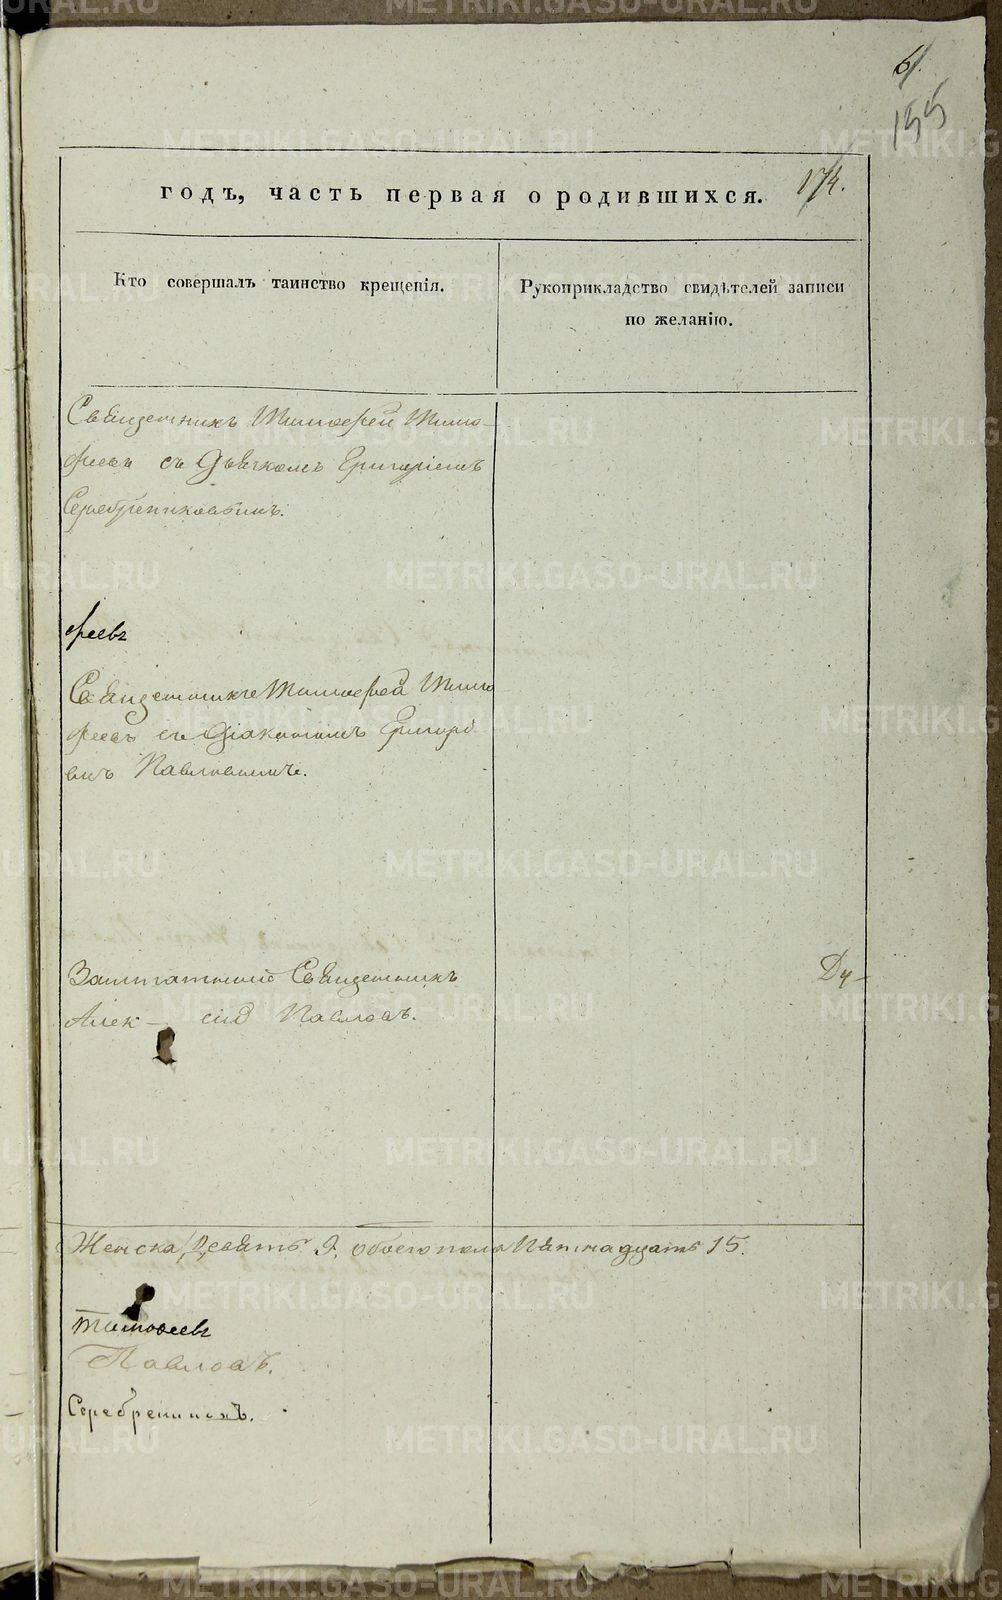 6.
155
174.
годъ, часть первая о родившихся.
Кто совершалъ таинство крещенія.
Рукоприкладство свидѣтелей записи
по желанію.
Священникъ Тимоѳей Тимо-
ѳеевъ съ Дьячкомъ Григоріемъ
Серебренниковымъ.
ѳеевъ
Священникъ Тимоѳей Тимо
ѳеевъ съ Діакономъ Григорі
емъ Павловымъ.
Заштатный Священникъ
Алек- сій Павловъ.
Ду-
Женска Девять 9, обоего пола Пятнадцать 15.
Тимоѳеевъ
Павловъ.
Серебренниковъ.
METRIKI.GASO-URAL.RU